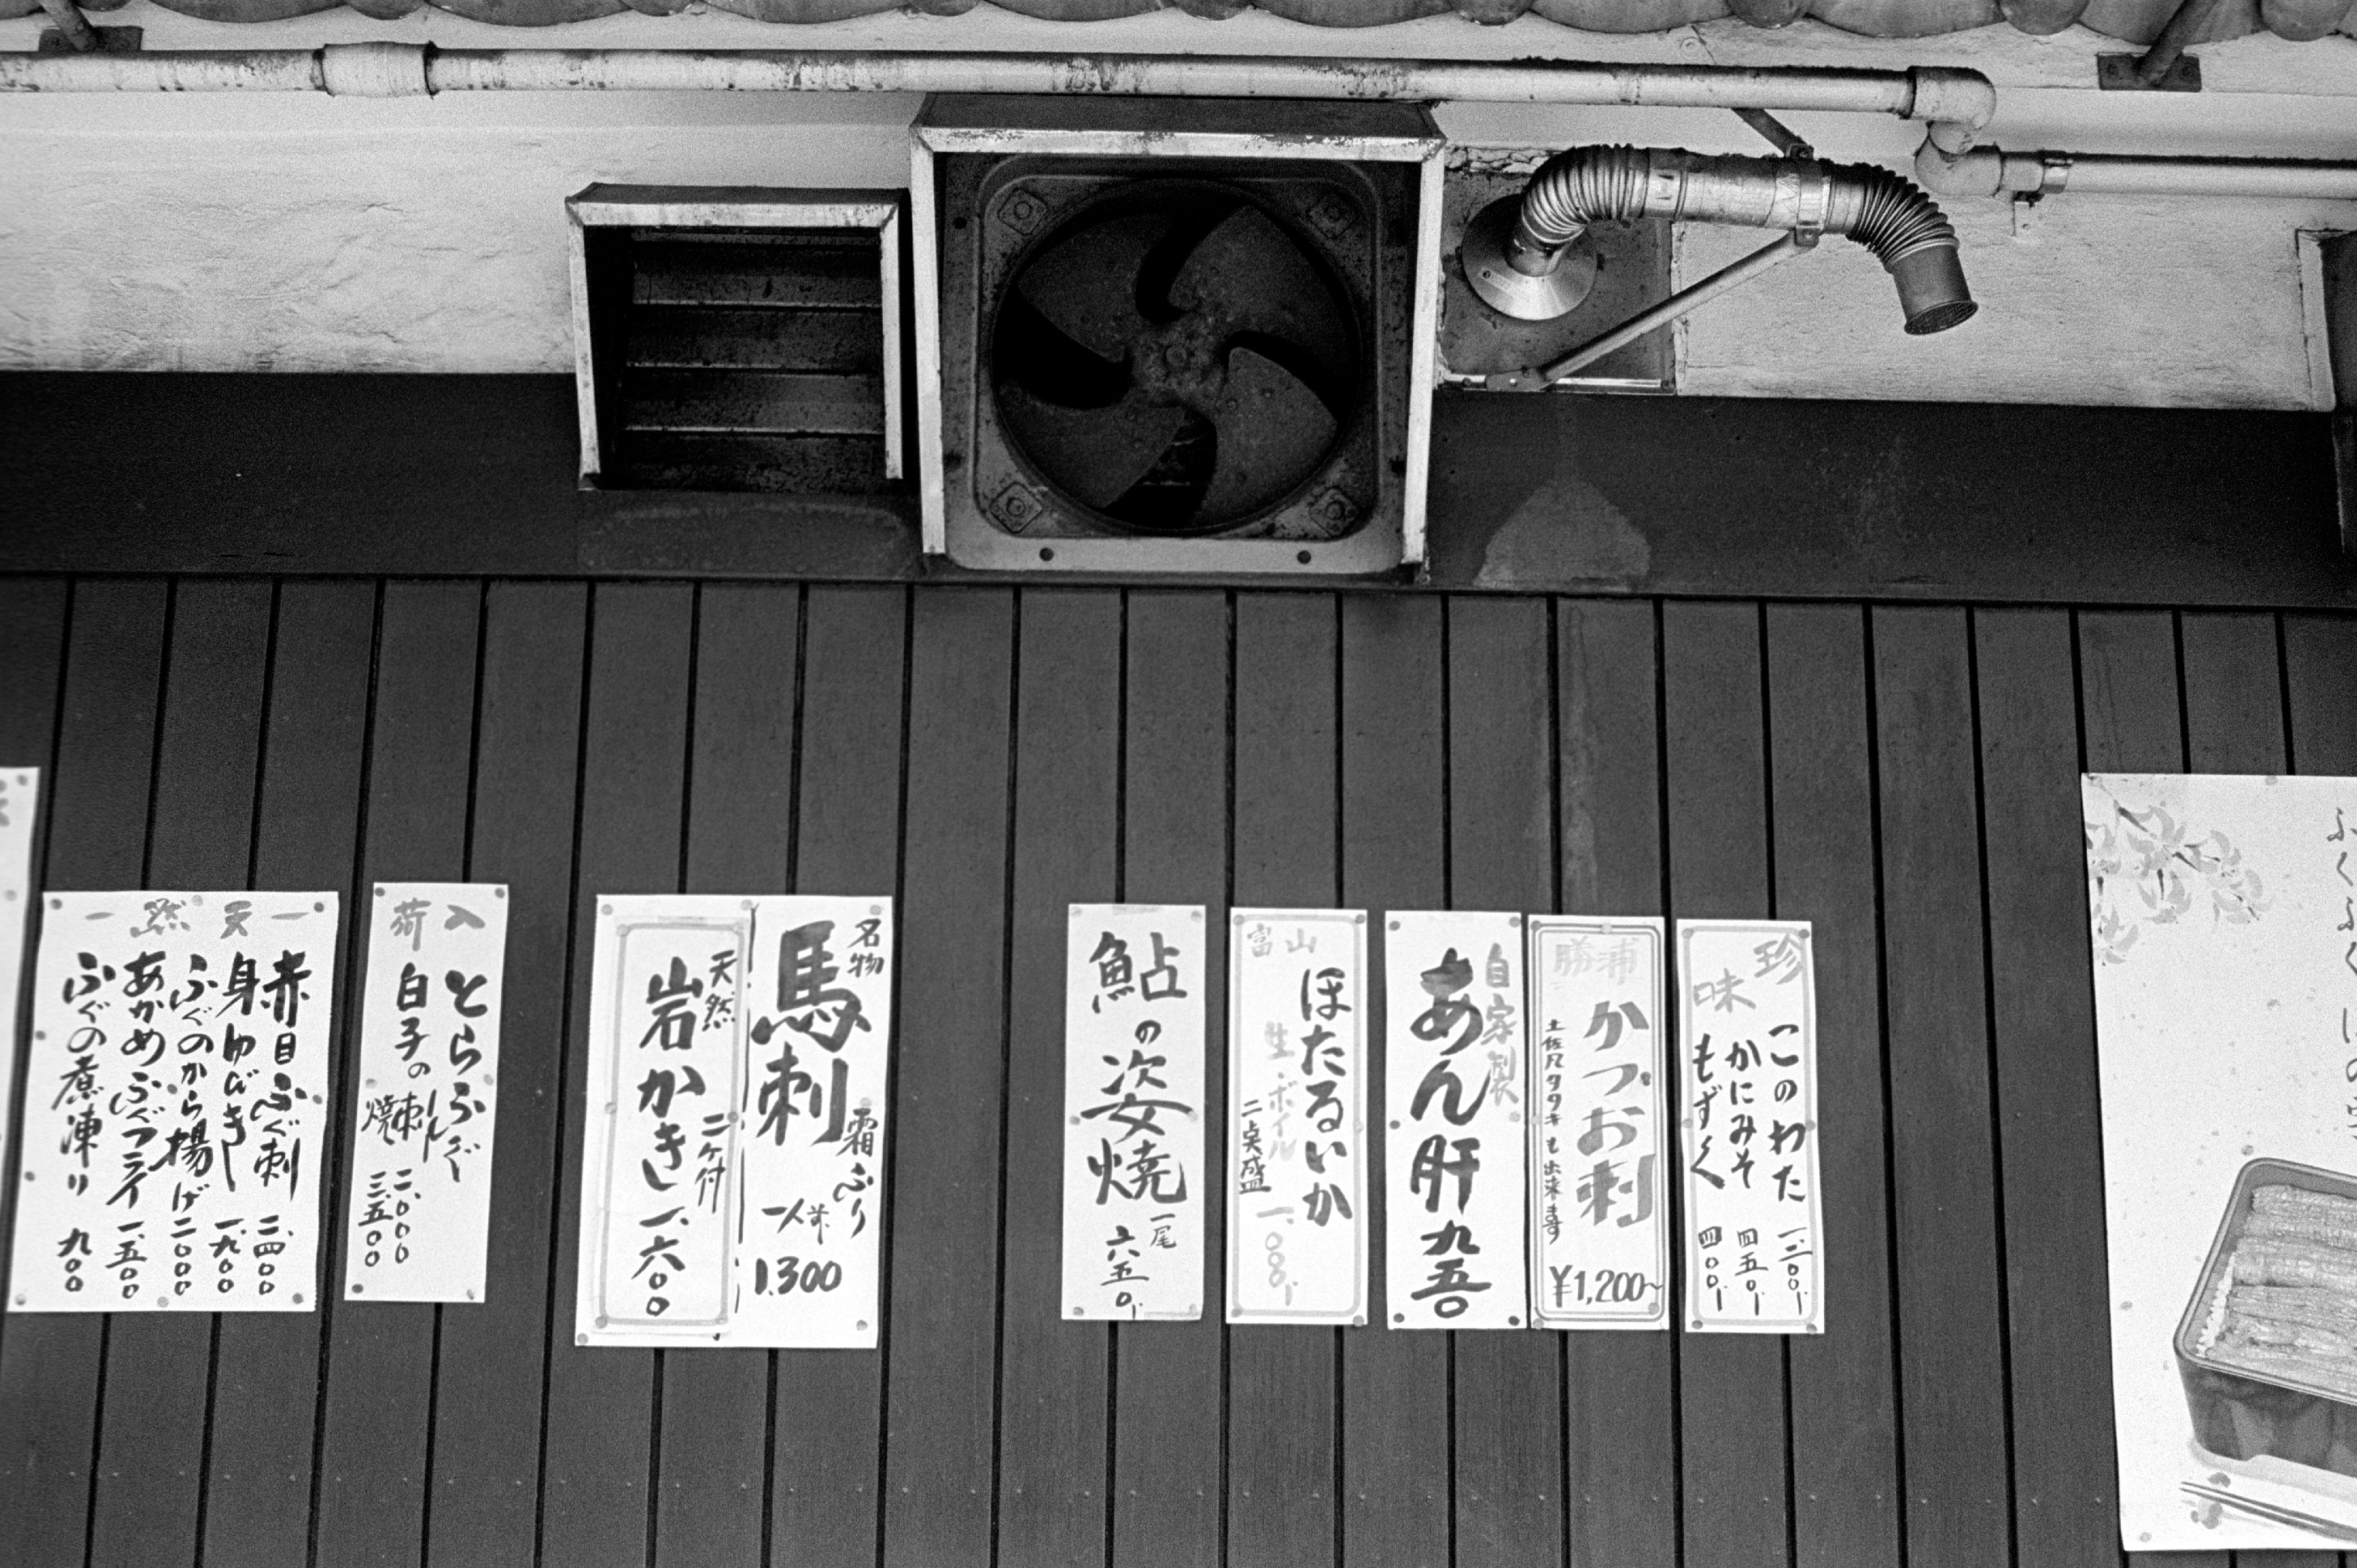 珍味
このわた 一、二〇〇-
かにみそ 四五〇-
もずく 四〇〇-
勝浦
かつお刺
¥1,200~
土佐風タタキも出来ます
自家製
あん肝 九五〇
富山
ほたるいか
生・ボイル
二点盛
一、〇〇〇-
鮎の姿焼
一尾
六五〇-
名物
馬刺
霜ふり
一人前
1.300
天然
岩かき
二ケ付
一、六〇〇
入荷
とらふぐ
白子の
刺し 二、〇〇〇
焼 三、五〇〇
ー天然ー
赤目ふぐ刺 二、四〇〇
身ゆびき 一、九〇〇
ふぐのから揚げ 二、〇〇〇
あかめふぐフライ 一、五〇〇
ふぐの煮凍り 九〇〇